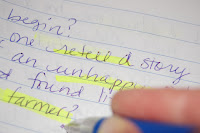 begin?
one retell a story
an unhappy
d found li
farmer?